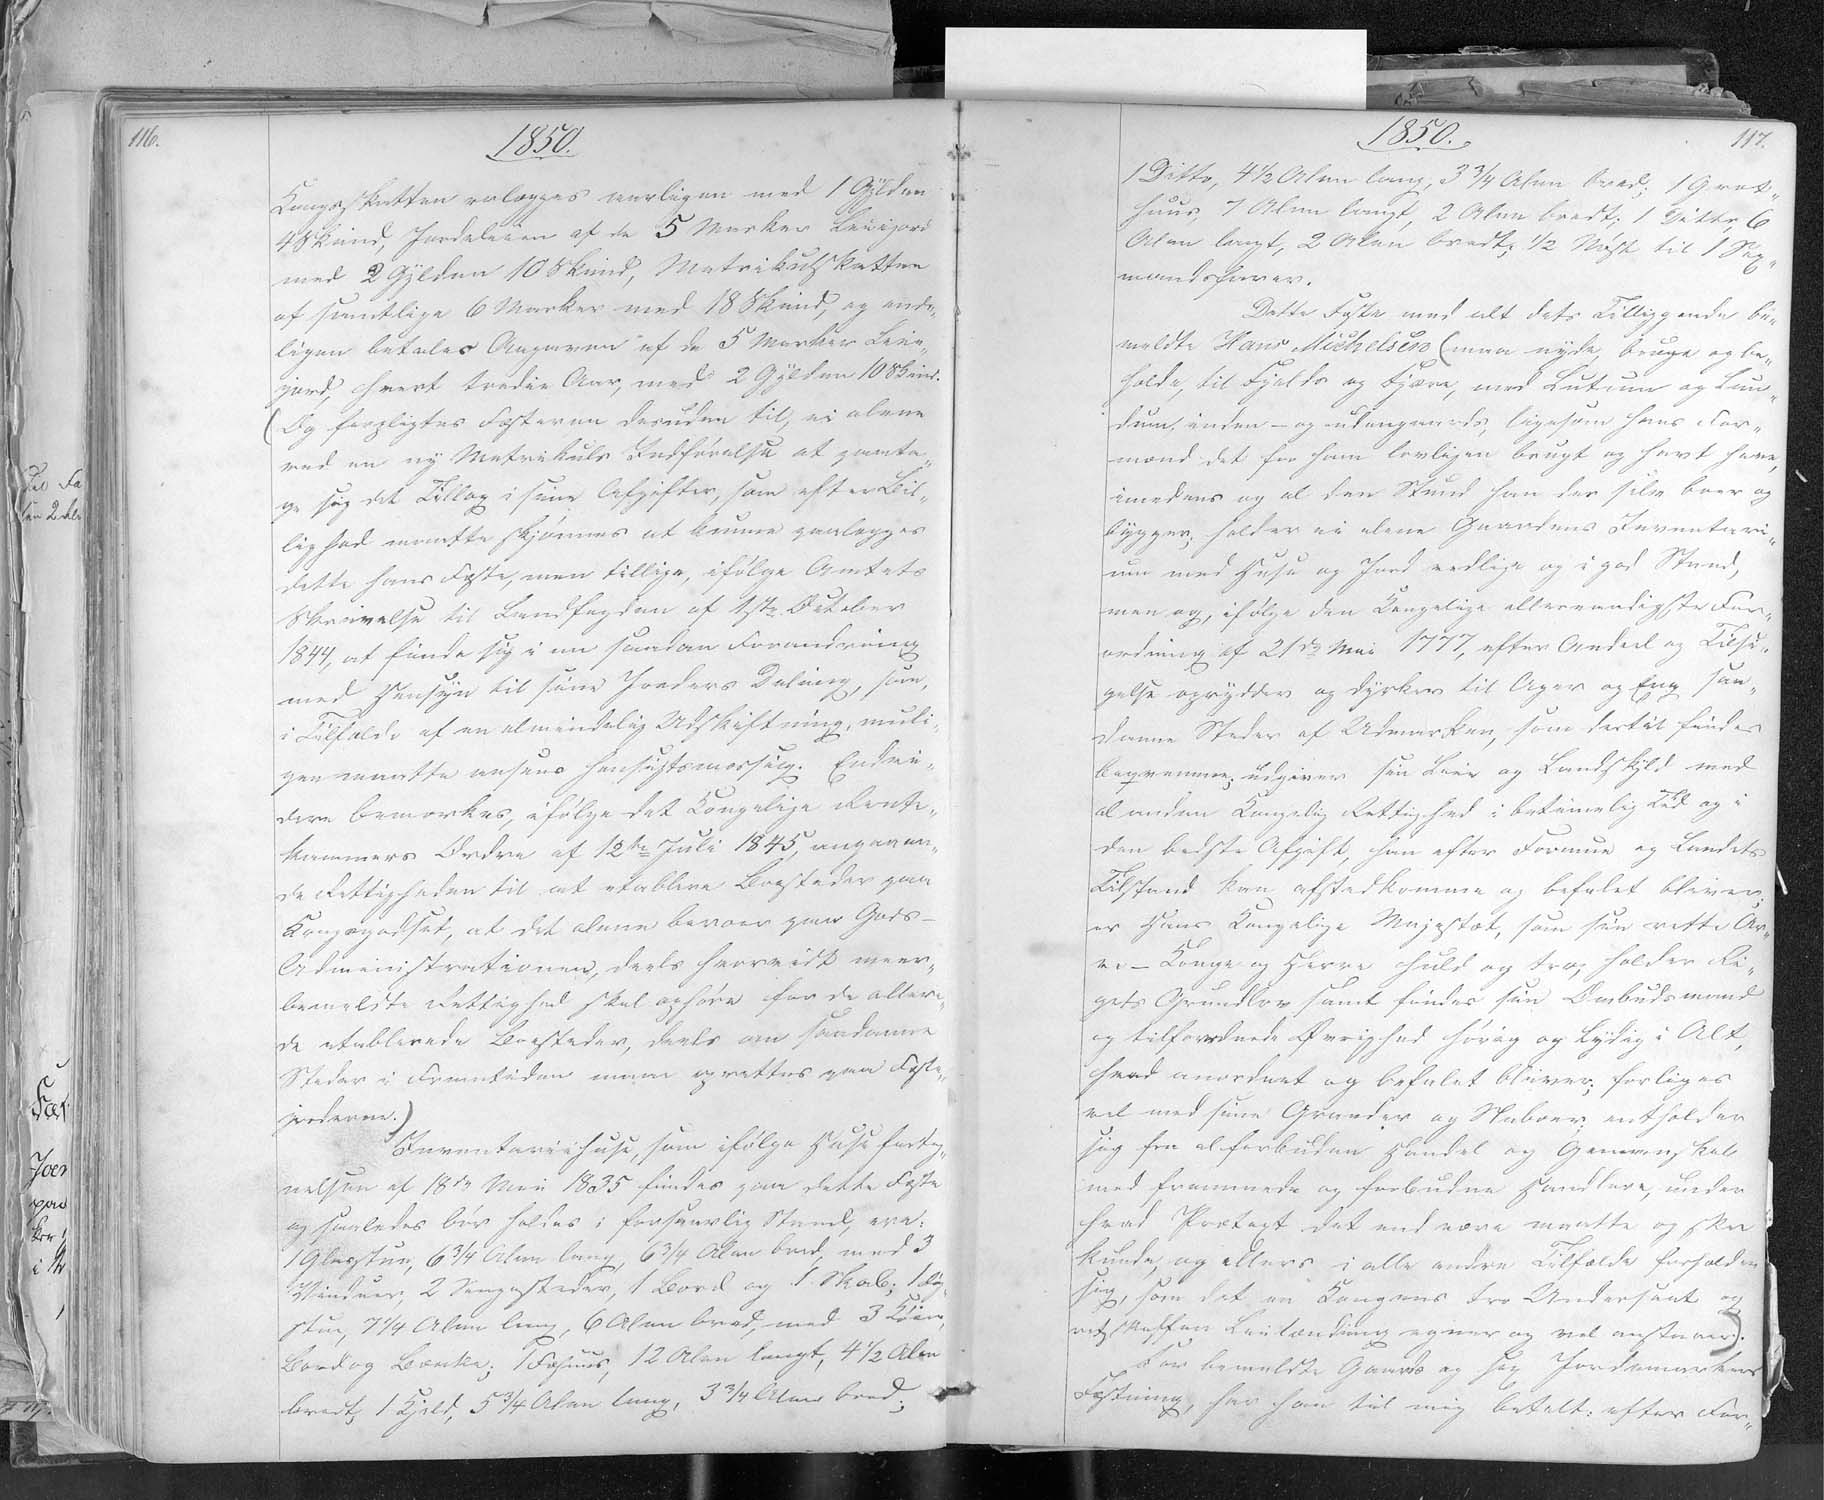 116.
1850.
Kongsskatten erlægges aarligen med 1 Gylden
4 Skind, Jordeleien af de 5 Marker Leiejord
med 2 Gylden 10 Skind, Matrikulskatten
af samtlige 6 Marker med 18 Skind, og ende„
ligen betales Angaven af de 5 Marker Leie„
jord, hvert tredie Aar, med 2 Gylden 10 Skind.
(Og forpligtes Fæsteren desuden til, ei alene
ved en ny Matrikuls Indførelse at paata„
ge sig det Tillæg i sine Afgifter, som efter Bil„
lighed maatte skjønnes at kunne paalægges
dette hans Fæste, men tillige, ifølge Amtets
Skrivelse til Landfogden af 1ste October
1844, at finde sig i en saadan Forandring
med Hensyn til sine Jorders Deling, som,
i Tilfælde af en almindelig Udskiftning, muli„
gen maatte ansees hensigtsmæssig. Endvi„
dere bemærkes, ifølge det Kongelige Rente„
kammers Ordre af 12te Juli 1845, angaaen„
de Rettigheden til at etablere Bosteder paa
Kongsgodset, at det alene beroer paa Gods-
Administrationen, deels hvorvidt meer„
bemeldte Rettighed skal ophøre for de allere„
de etablerede Bosteder, deels om saadanne
Steder i Fremtiden maae oprettes paa Fæste„
jorderne.)
Inventariihuse, som ifølge Huse forteg„
nelsen af 18de Mai 1835 findes paa dette Fæste
og saaledes bør holdes i forsvarlig Stand, ere:
1 Glasstue, 6 3/4 Alen lang, 6 3/4 Alen bred, med 3
Vinduer, 2 Sengesteder, 1 Bord og 1 Skab; 1 Røg„
stue, 7 1/4 Alen lang, 6 Alen bred, med 3 Køier,
Bord og Bænke; 1 Fæhuus, 12 Alen langt, 4 1/2 Alen
bredt; 1 Hjeld, 5 3/4 Alen lang, 3 3/4 Alen bred;
117.
1850.
1 Ditto, 4 1/2 Alen lang, 3 3/4 Alen bred; 1 Grot„
huus, 7 Alen langt, 2 Alen bredt; 1 Ditto, 6
Alen langt, 2 Alen bredt; 1/2 Nøst til 1 Sex„
mandsfarer.
Dette Fæste med alt dets Tilliggende be„
meldte Hans Michelsen (maa nyde, bruge og be„
holde, til Fjelds og Fjære, med Lutum og Lun„
dum, inden- og udengaards, ligesom hans For„
mænd det før ham lovligen brugt og havt have,
imedens og al den Stund han der selv boer og
bygger; holder ei alene Gaardens Inventari„
um med Huse og Jord vedlige og i god Stand,
men og, ifølge den Kongelige allernaadigste For„
ordning af 21de Mai 1777, efter Andeel og Tilsi„
gelse oprydder og dyrker til Ager og Eng saa„
danne Steder af Udmarken, som dertil findes
beqvemme; udgiver sin Leie og Landskyld med
al anden Kongelig Rettighed i betimelig Tid og i
den bedste Afgift, han efter Formue og Landets
Tilstand kan afstedkomme og befalet bliver;
er Hans Kongelige Majestæt, som sin rette Ar„
ve-Konge og Herre huld og tro, holder Ri„
gets Grundlov samt findes sin Ombudsmand
og tilforordnede Øvrighed hørig og lydig i Alt,
hvad anordnet og befalet bliver; forliges
vel med sine Grander og Naboer; entholder
sig fra al forbuden Handel og Gemeenskab
med fremmede og forbudne Handlere, under
hvad Prætext det end være maatte og skee
kunde, og ellers i alle andre Tilfælde forholder
sig, som det en Kongens tro Undersaat og
retskaffen Leilænding egner og vel anstaaer.)
For bemeldte Gaards og sex Jordemarkers
Fæstning, har han til mig betalt: efter For„